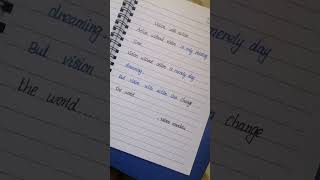 Vision with action
Action without vision is only passing
time
Vision without action is merely day
dreaming
But vision with action can change
the world
- Nelson Mandela
dreaming
merely day
But vision
change
the world